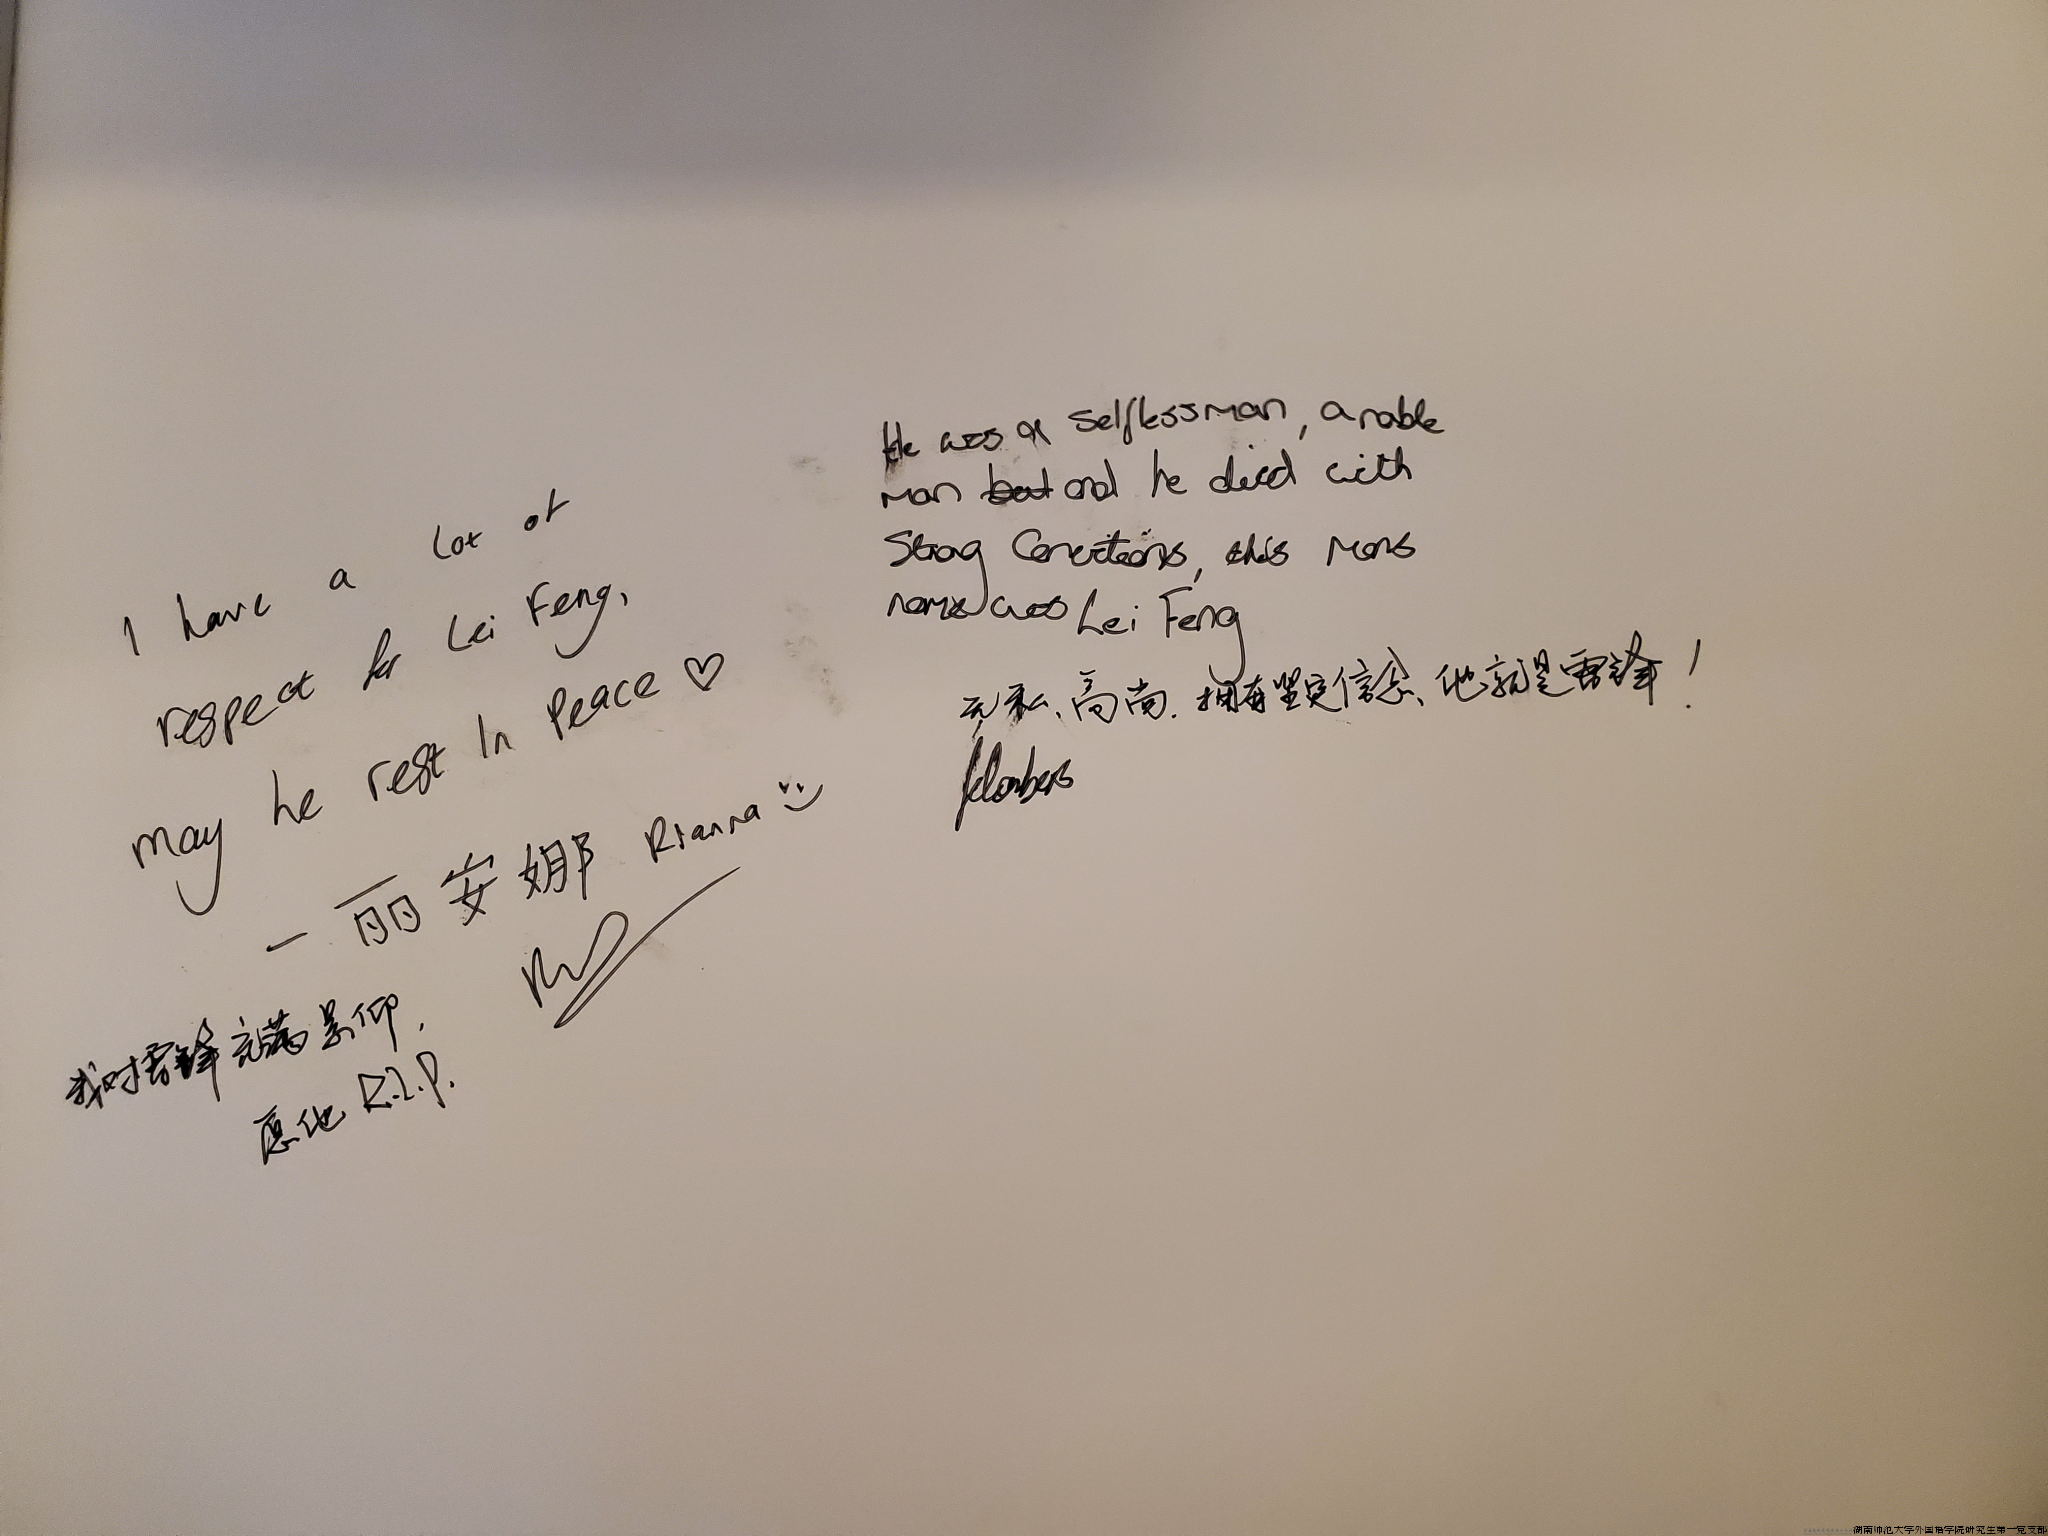 I have a lot of
respect for Lei Feng,
may he rest in Peace ♡
一丽安娜 Rianna
我对雷锋充满景仰,
愿他 R.I.P.
He was a selfless man, a noble
man but and he died with
Strong Convictions, this mans
name was Lei Feng
无私、高尚、拥有坚定信念、他就是雷锋！
湖南师范大学外国语学院研究生第一党支部